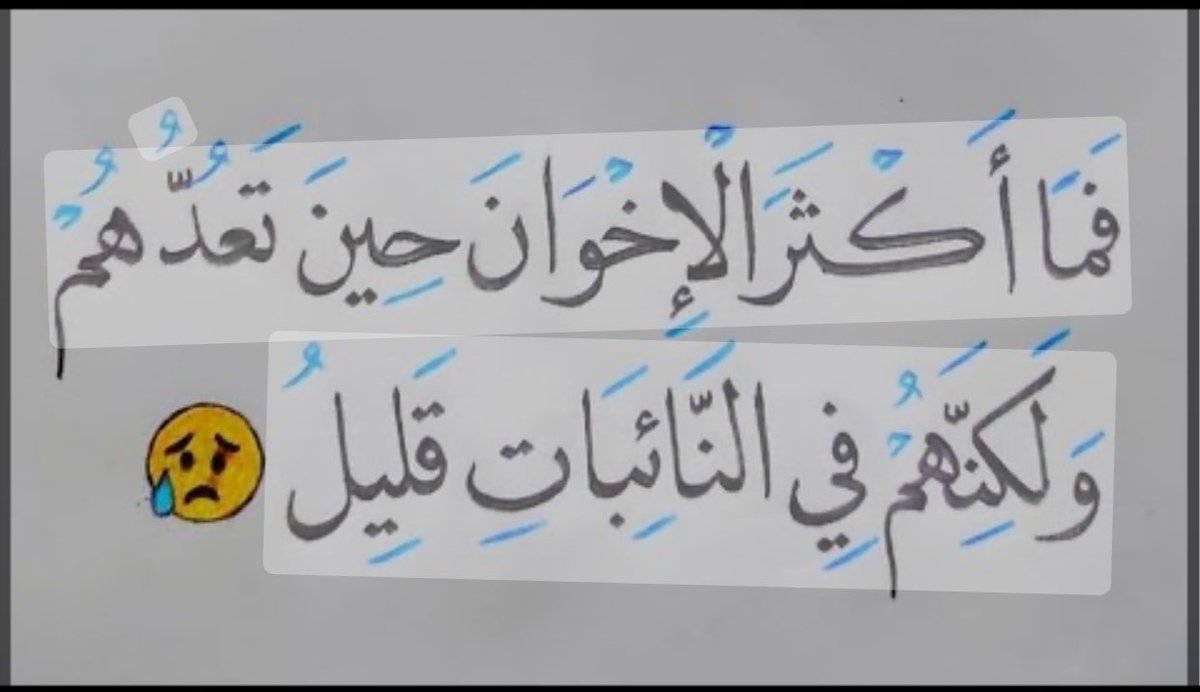 فَمَا أَكْثَرَ الْإِخْوَانَ حِينَ تَعُدُّهُمُ
وَلَكِنَّهُمُ فِي النَّائِبَاتِ قَلِيلُ